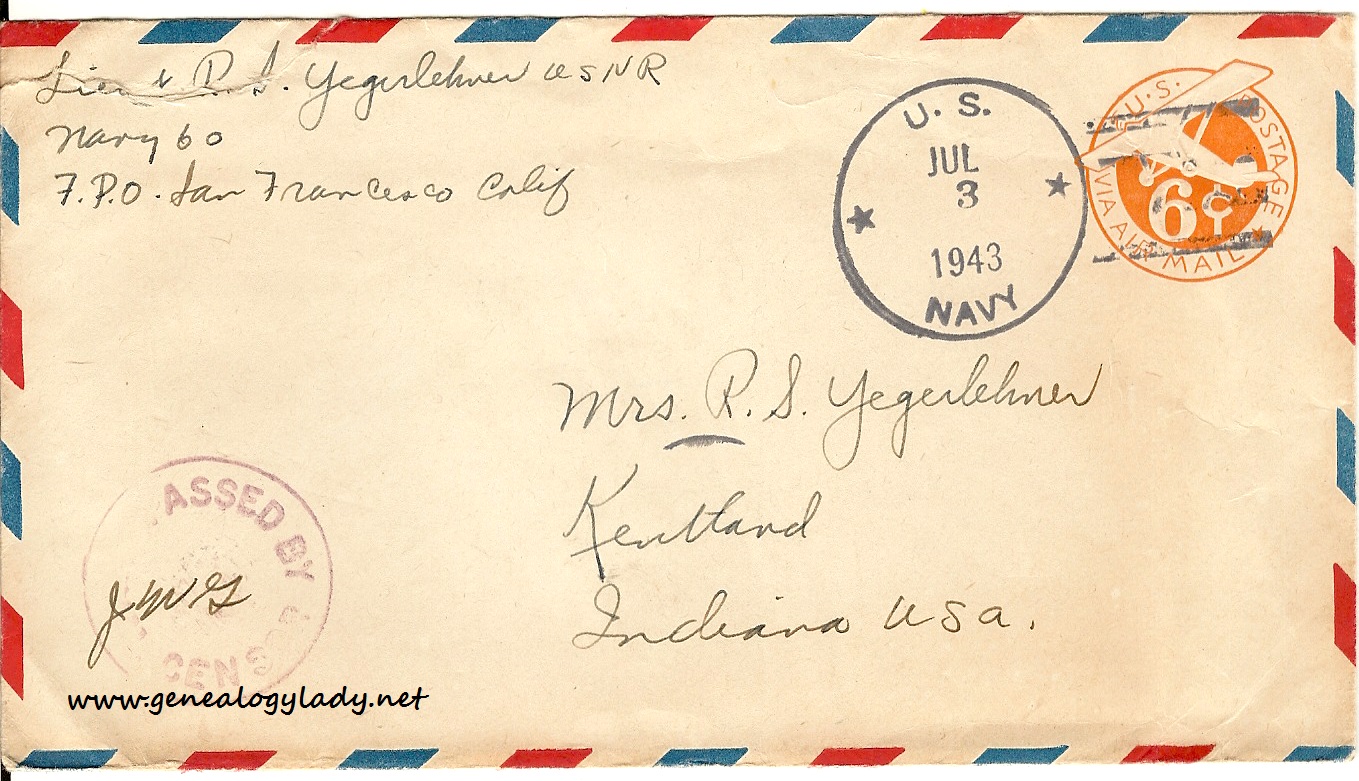 Lieut R. S. Yegerlehner USNR
Navy 60
F.P.O. San Francesco Calif
U. S.
JUL
3
1943
NAVY
U.S. POSTAGE
6¢
VIA AIR MAIL
Mrs. R. S. Yegerlehner
Kentland
Indiana USA.
ASSED BY
CENS
JWG
www.genealogylady.net